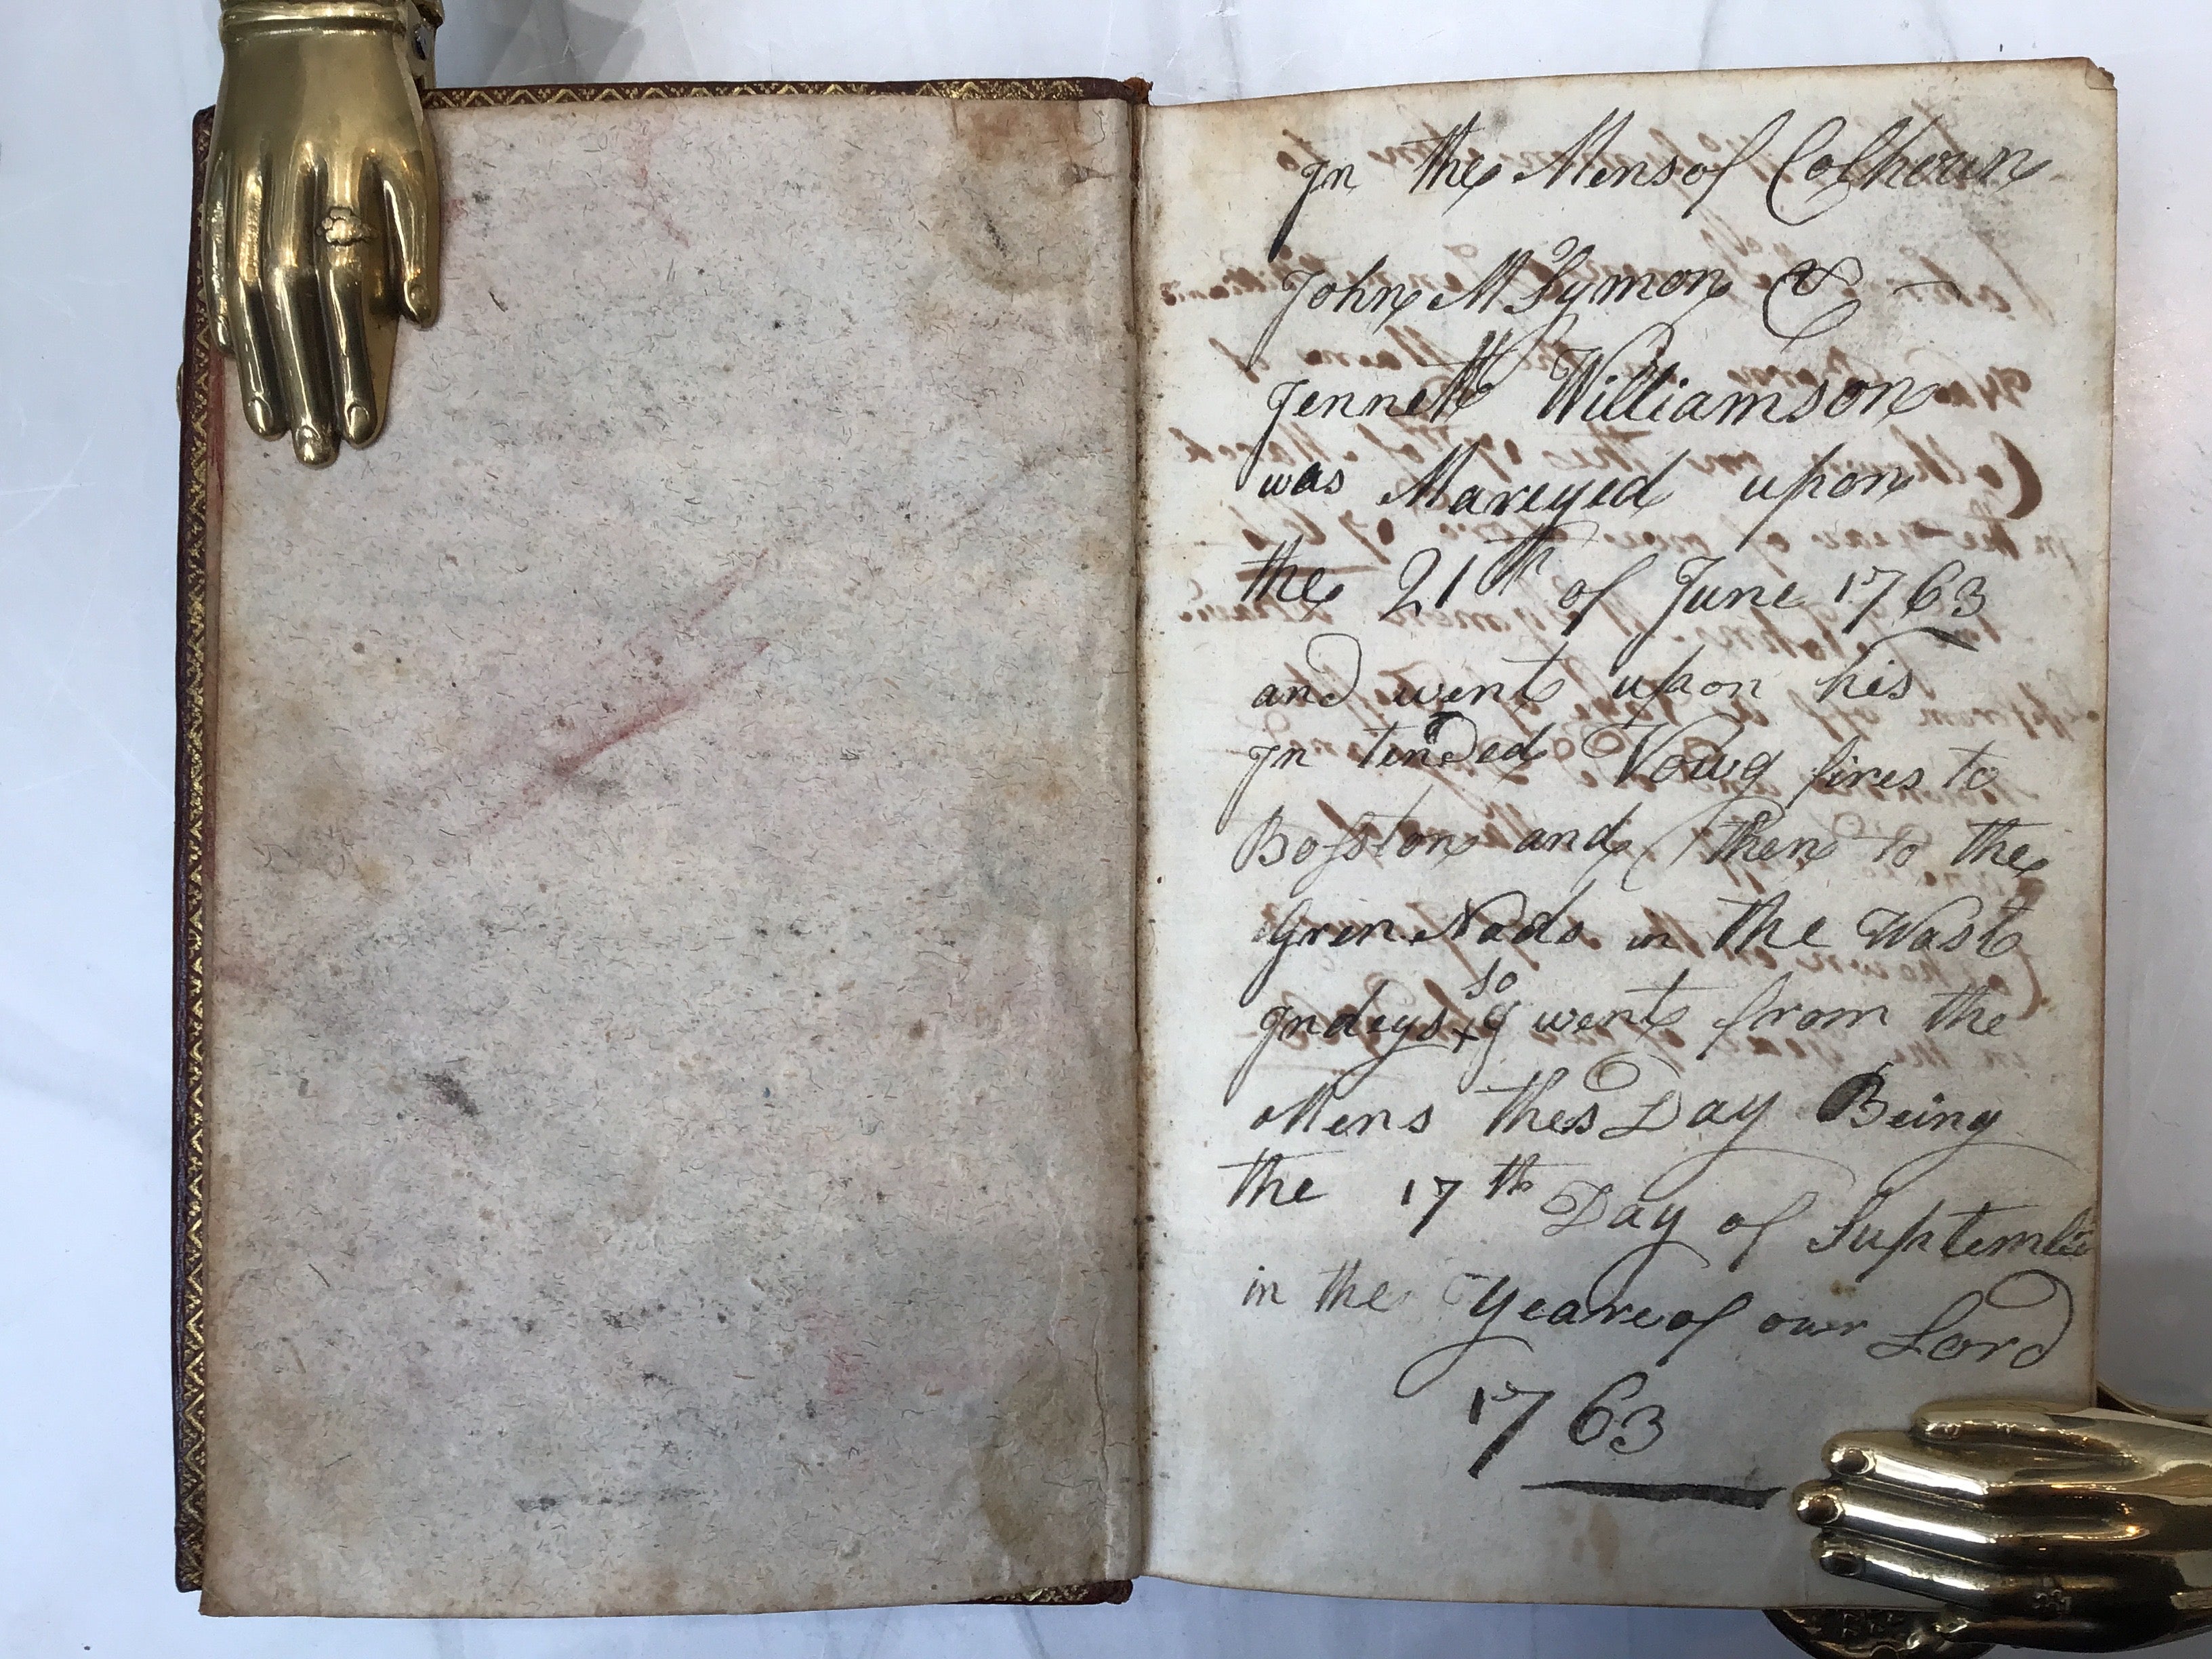 In the Mens of Colhoun
John McSymon &
Jennett Williamson
was Mareyed upon
the 21th of June 1763
and went upon his
In tended Voug fires to
Bosston and then to the
Gren Nado in the Wast
Indeys so I went from the
Mens thes Day Being
the 17th Day of Suptember
in the yeare of owr Lord
1763